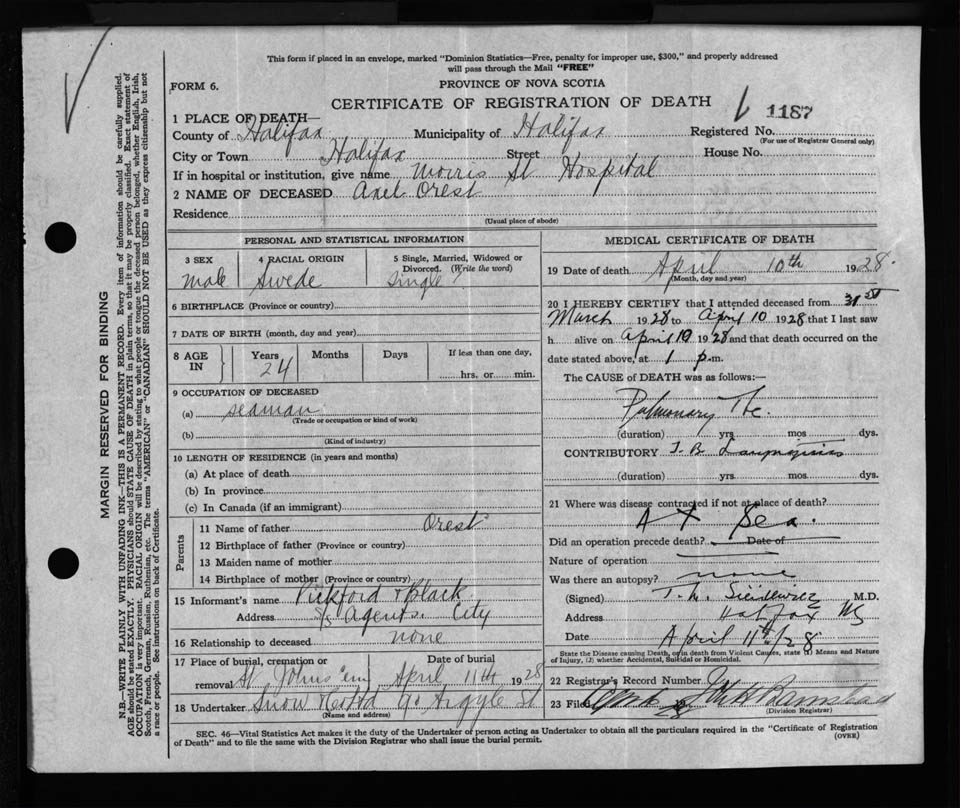 This form if placed in an envelope, marked "Dominion Statistics—Free, penalty for improper use, $300," and properly addressed
will pass through the Mail "FREE"
FORM 6.
PROVINCE OF NOVA SCOTIA
CERTIFICATE OF REGISTRATION OF DEATH
1187
1 PLACE OF DEATH—
County of Halifax Municipality of Halifax Registered No.
(For use of Registrar General only)
City or Town Halifax Street House No.
If in hospital or institution, give name Morris St Hospital
2 NAME OF DECEASED Axel Orest
Residence
(Usual place of abode)
PERSONAL AND STATISTICAL INFORMATION
3 SEX 4 RACIAL ORIGIN 5 Single, Married, Widowed or
Divorced. (Write the word)
male Swede single
6 BIRTHPLACE (Province or country)
7 DATE OF BIRTH (month, day and year)
8 AGE IN Years Months Days If less than one day,
24 hrs. or min.
9 OCCUPATION OF DECEASED
(a) seaman
(Trade or occupation or kind of work)
(b)
(Kind of industry)
10 LENGTH OF RESIDENCE (in years and months)
(a) At place of death
(b) In province
(c) In Canada (if an immigrant)
Parents
11 Name of father Orest
12 Birthplace of father (Province or country)
13 Maiden name of mother
14 Birthplace of mother (Province or country)
15 Informant's name Pickford & Black
Address S/S Agents. City
16 Relationship to deceased none
17 Place of burial, cremation or Date of burial
removal St Johns Cem April 11th 1928
18 Undertaker Snow & Co Ltd 90 Argyle St
(Name and address)
MEDICAL CERTIFICATE OF DEATH
19 Date of death April 10th 1928.
(Month, day and year)
20 I HEREBY CERTIFY that I attended deceased from 31st
March 1928 to April 10 1928 that I last saw
h alive on April 10 1928 and that death occurred on the
date stated above, at 1 p.m.
The CAUSE of DEATH was as follows:—
Pulmonary Tbc.
(duration) yrs. mos. dys.
CONTRIBUTORY T.B. Laryngitis
(duration) yrs. mos. dys.
21 Where was disease contracted if not at place of death?
At Sea.
Did an operation precede death? Date of
Nature of operation
Was there an autopsy? none
(Signed) T. M. Sieniewicz M.D.
Address Halifax NS
Date April 11th/28
State the Disease causing Death, or in death from Violent Causes, state (1) Means and Nature
of Injury, (2) whether Accidental, Suicidal or Homicidal.
22 Registrar's Record Number
23 Filed
(Division Registrar)
SEC. 46—Vital Statistics Act makes it the duty of the Undertaker or person acting as Undertaker to obtain all the particulars required in the "Certificate of Registration
of Death" and to file the same with the Division Registrar who shall issue the burial permit.
(OVER)
MARGIN RESERVED FOR BINDING
N.B.—WRITE PLAINLY WITH UNFADING INK—THIS IS A PERMANENT RECORD. Every item of information should be carefully supplied.
AGE should be stated EXACTLY. PHYSICIANS should STATE CAUSE OF DEATH in plain terms, so that it may be properly classified. Exact statement of
OCCUPATION is very important. RACIAL ORIGIN will be described by stating to what people or tongue the deceased person belonged, whether English, Irish,
Scotch, French, German, Russian, Ruthenian, etc. The terms "AMERICAN" or "CANADIAN" SHOULD NOT BE USED as they express citizenship but not
a race or people. See instructions on back of Certificate.